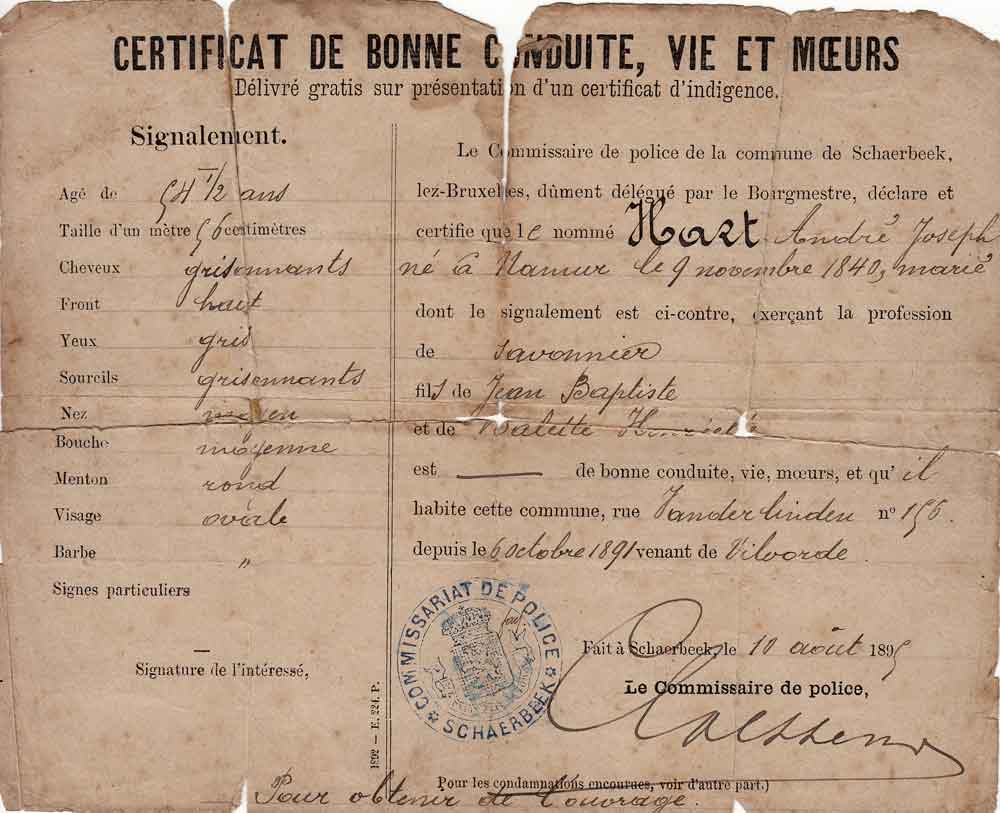 CERTIFICAT DE BONNE CONDUITE, VIE ET MŒURS
Délivré gratis sur présentation d'un certificat d'indigence.
Signalement.
Agé de 54 1/2 ans
Taille d'un mètre 56 centimètres
Cheveux grisonnants
Front haut
Yeux gris
Sourcils grisonnants
Nez moyen
Bouche moyenne
Menton rond
Visage ovale
Barbe "
Signes particuliers
—
Signature de l'intéressé,
1892 — E. 224. P.
Le Commissaire de police de la commune de Schaerbeek,
lez-Bruxelles, dûment délégué par le Bourgmestre, déclare et
certifie que le nommé Hart André Joseph
né à Namur le 9 novembre 1840, marié
dont le signalement est ci-contre, exerçant la profession
de savonnier
fils de Jean Baptiste
et de
est — de bonne conduite, vie, mœurs, et qu'il
habite cette commune, rue Vanderlinden n° 156.
depuis le 6 octobre 1891 venant de Vilvorde.
COMMISSARIAT DE POLICE
SCHAERBEEK
Fait à Schaerbeek, le 10 août 1895
Le Commissaire de police,
Pour les condamnations encourues, voir d'autre part.)
Pour obtenir de l'ouvrage.